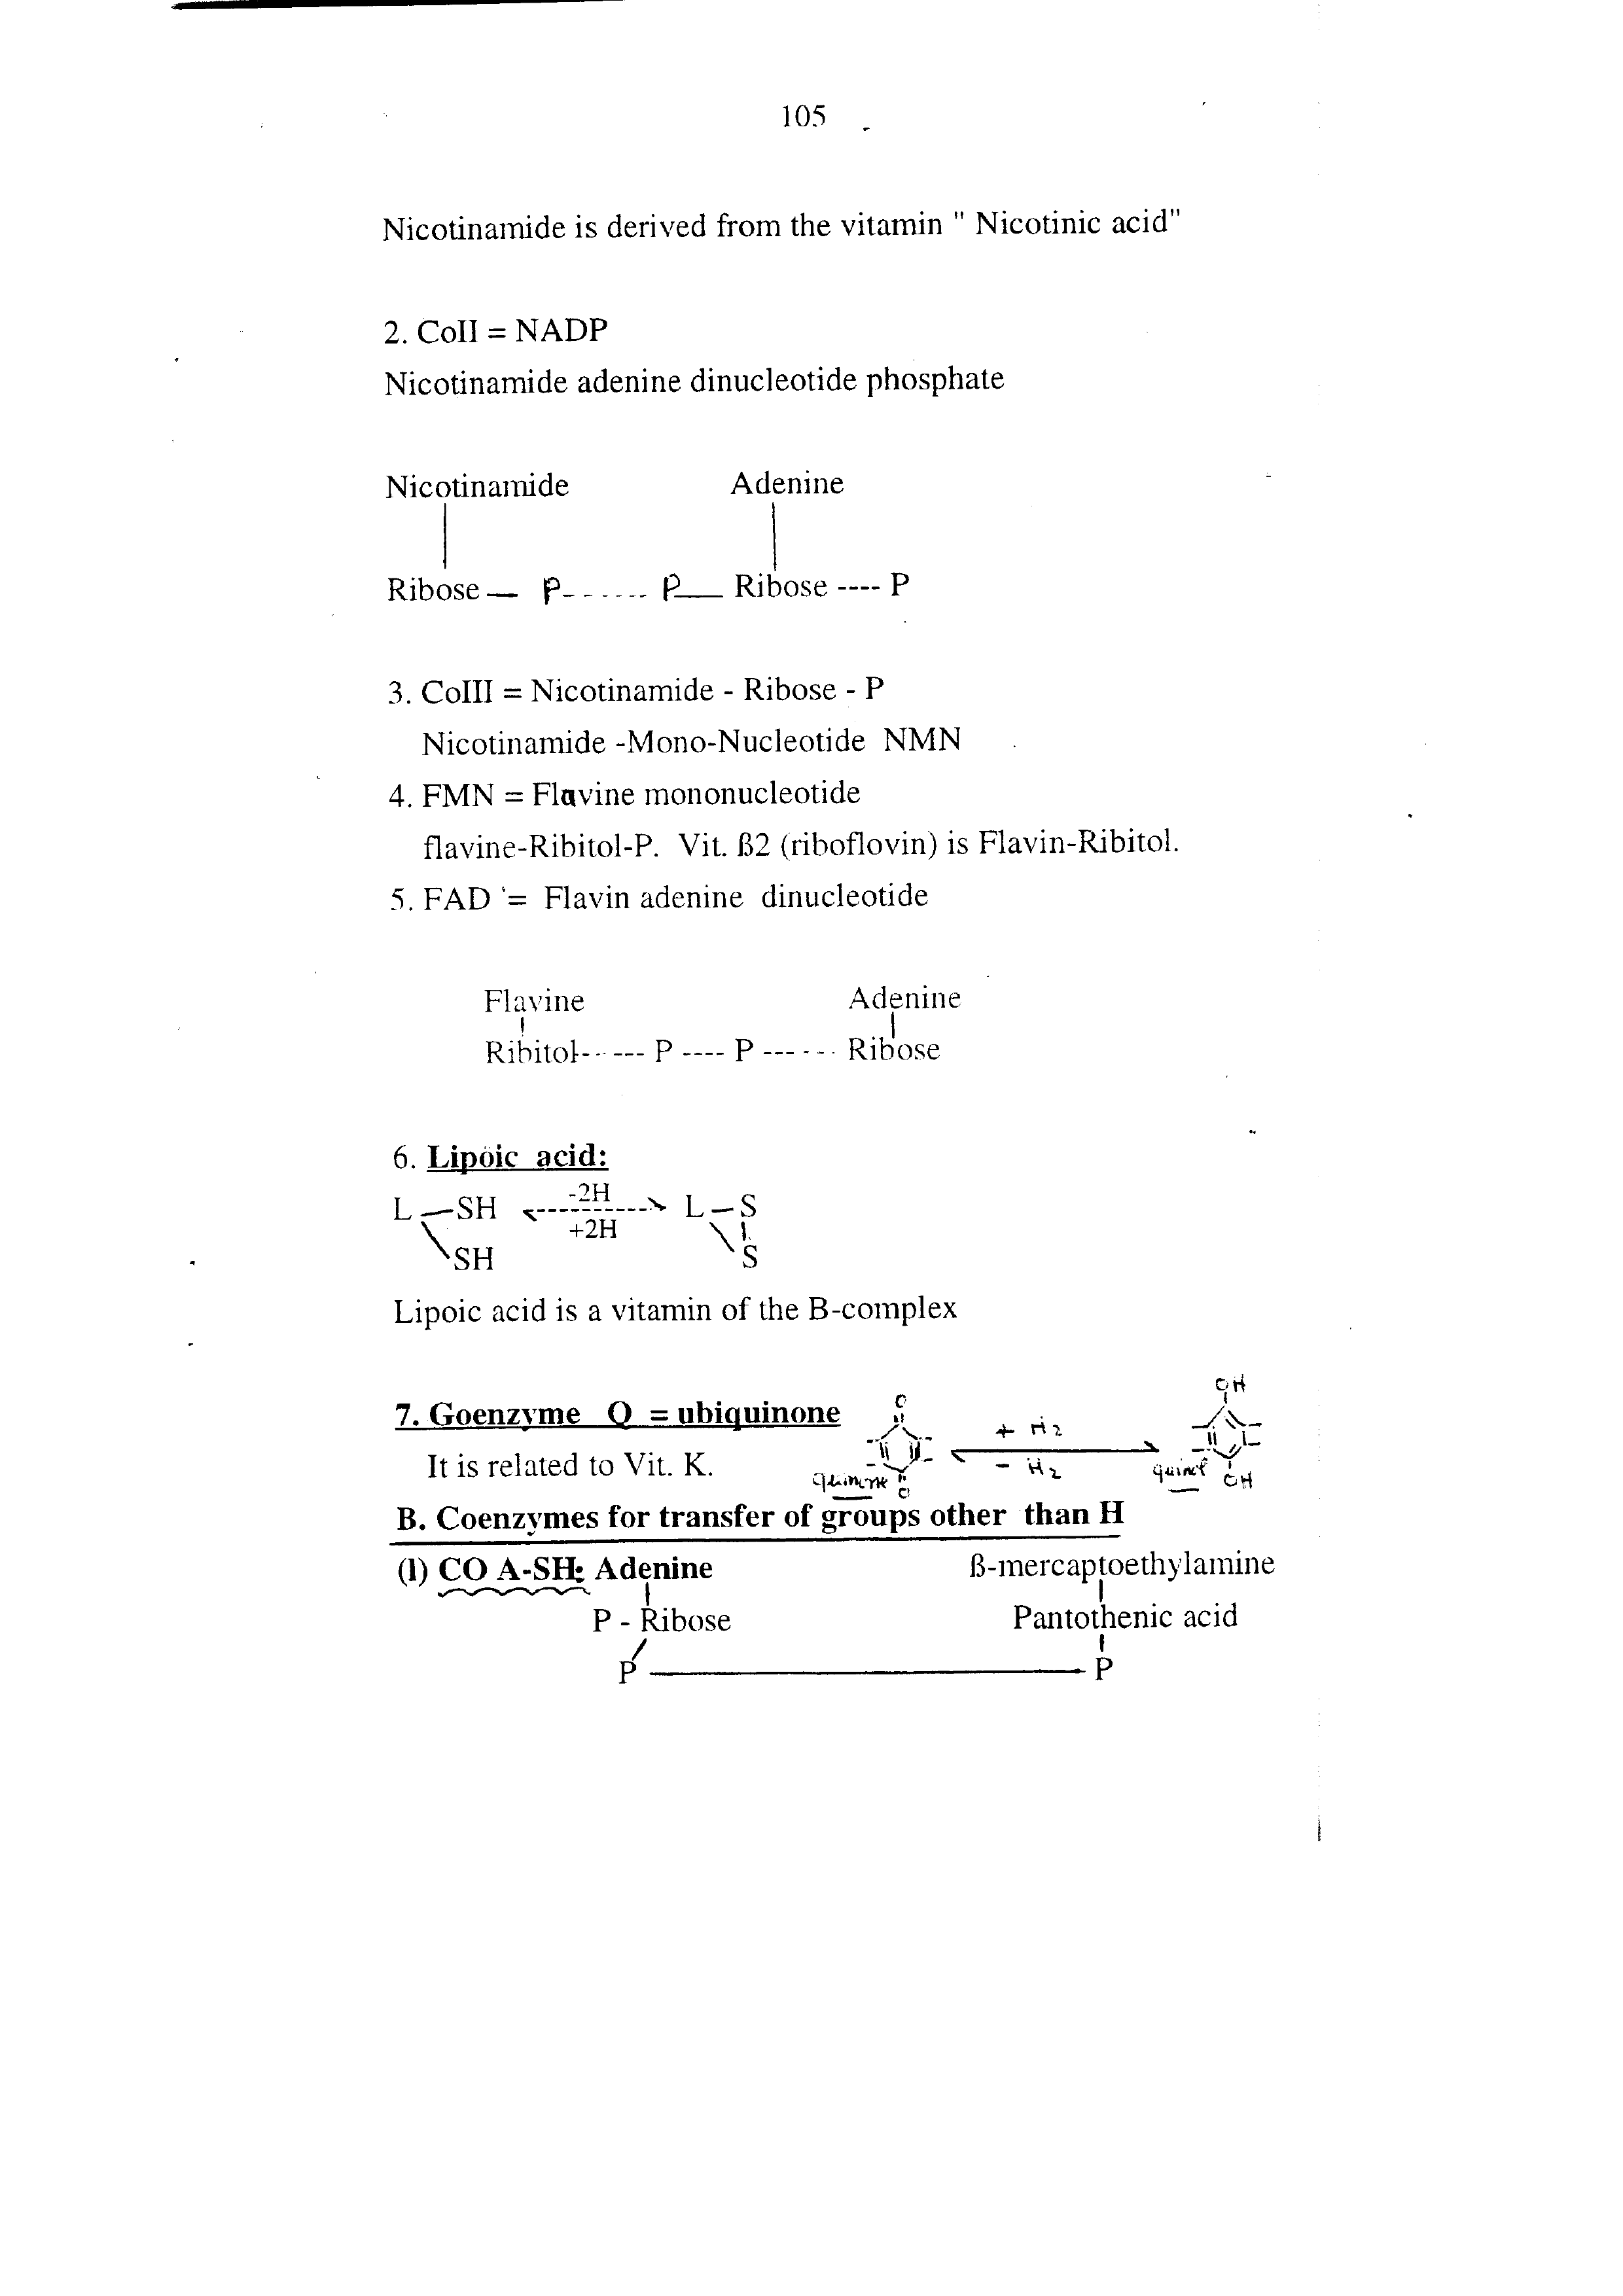 105
Nicotinamide is derived from the vitamin " Nicotinic acid"
2. CoII = NADP
Nicotinamide adenine dinucleotide phosphate
Nicotinamide Adenine
Ribose — P- - - - - - P — Ribose ---- P
3. CoIII = Nicotinamide - Ribose - P
Nicotinamide -Mono-Nucleotide NMN
4. FMN = Flavine mononucleotide
flavine-Ribitol-P. Vit. ß2 (riboflovin) is Flavin-Ribitol.
5. FAD '= Flavin adenine dinucleotide
Flavine Adenine
Ribitol------ P ---- P ------ Ribose
6. Lipoic acid:
-2H
L — SH <----------> L – S
+2H
SH S
Lipoic acid is a vitamin of the B-complex
OH
O
7. Goenzyme Q = ubiquinone + H2
It is related to Vit. K. - H2
quinone O quinol OH
B. Coenzymes for transfer of groups other than H
(1) CO A-SH: Adenine ß-mercaptoethylamine
P - Ribose Pantothenic acid
P ———— P